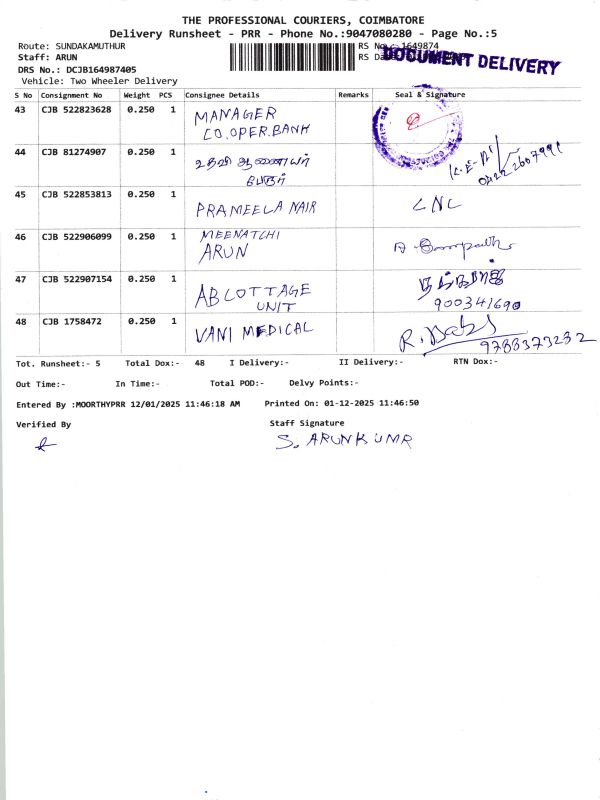 THE PROFESSIONAL COURIERS, COIMBATORE
Delivery Runsheet - PRR - Phone No.:9047080280 - Page No.:5
Route: SUNDAKAMUTHUR RS No.: 1649874
Staff: ARUN RS Da
DOCUMENT DELIVERY
DRS No.: DCJB164987405
Vehicle: Two Wheeler Delivery
S No Consignment No Weight PCS Consignee Details Remarks Seal & Signature
43 CJB 522823628 0.250 1 MANAGER
CO.OPER.BANK
44 CJB 81274907 0.250 1 உதவி ஆணையர்
பேரூர்
45 CJB 522853813 0.250 1 PRAMEELA NAIR
46 CJB 522906099 0.250 1 MEENATCHI
ARUN
47 CJB 522907154 0.250 1 AB COTTAGE
UNIT 900341690
48 CJB 1758472 0.250 1 VANI MEDICAL
9788373232
Tot. Runsheet:- 5 Total Dox:- 48 I Delivery:- II Delivery:- RTN Dox:-
Out Time:- In Time:- Total POD:- Delvy Points:-
Entered By :MOORTHYPRR 12/01/2025 11:46:18 AM Printed On: 01-12-2025 11:46:50
Verified By Staff Signature
S. ARUNKUMR